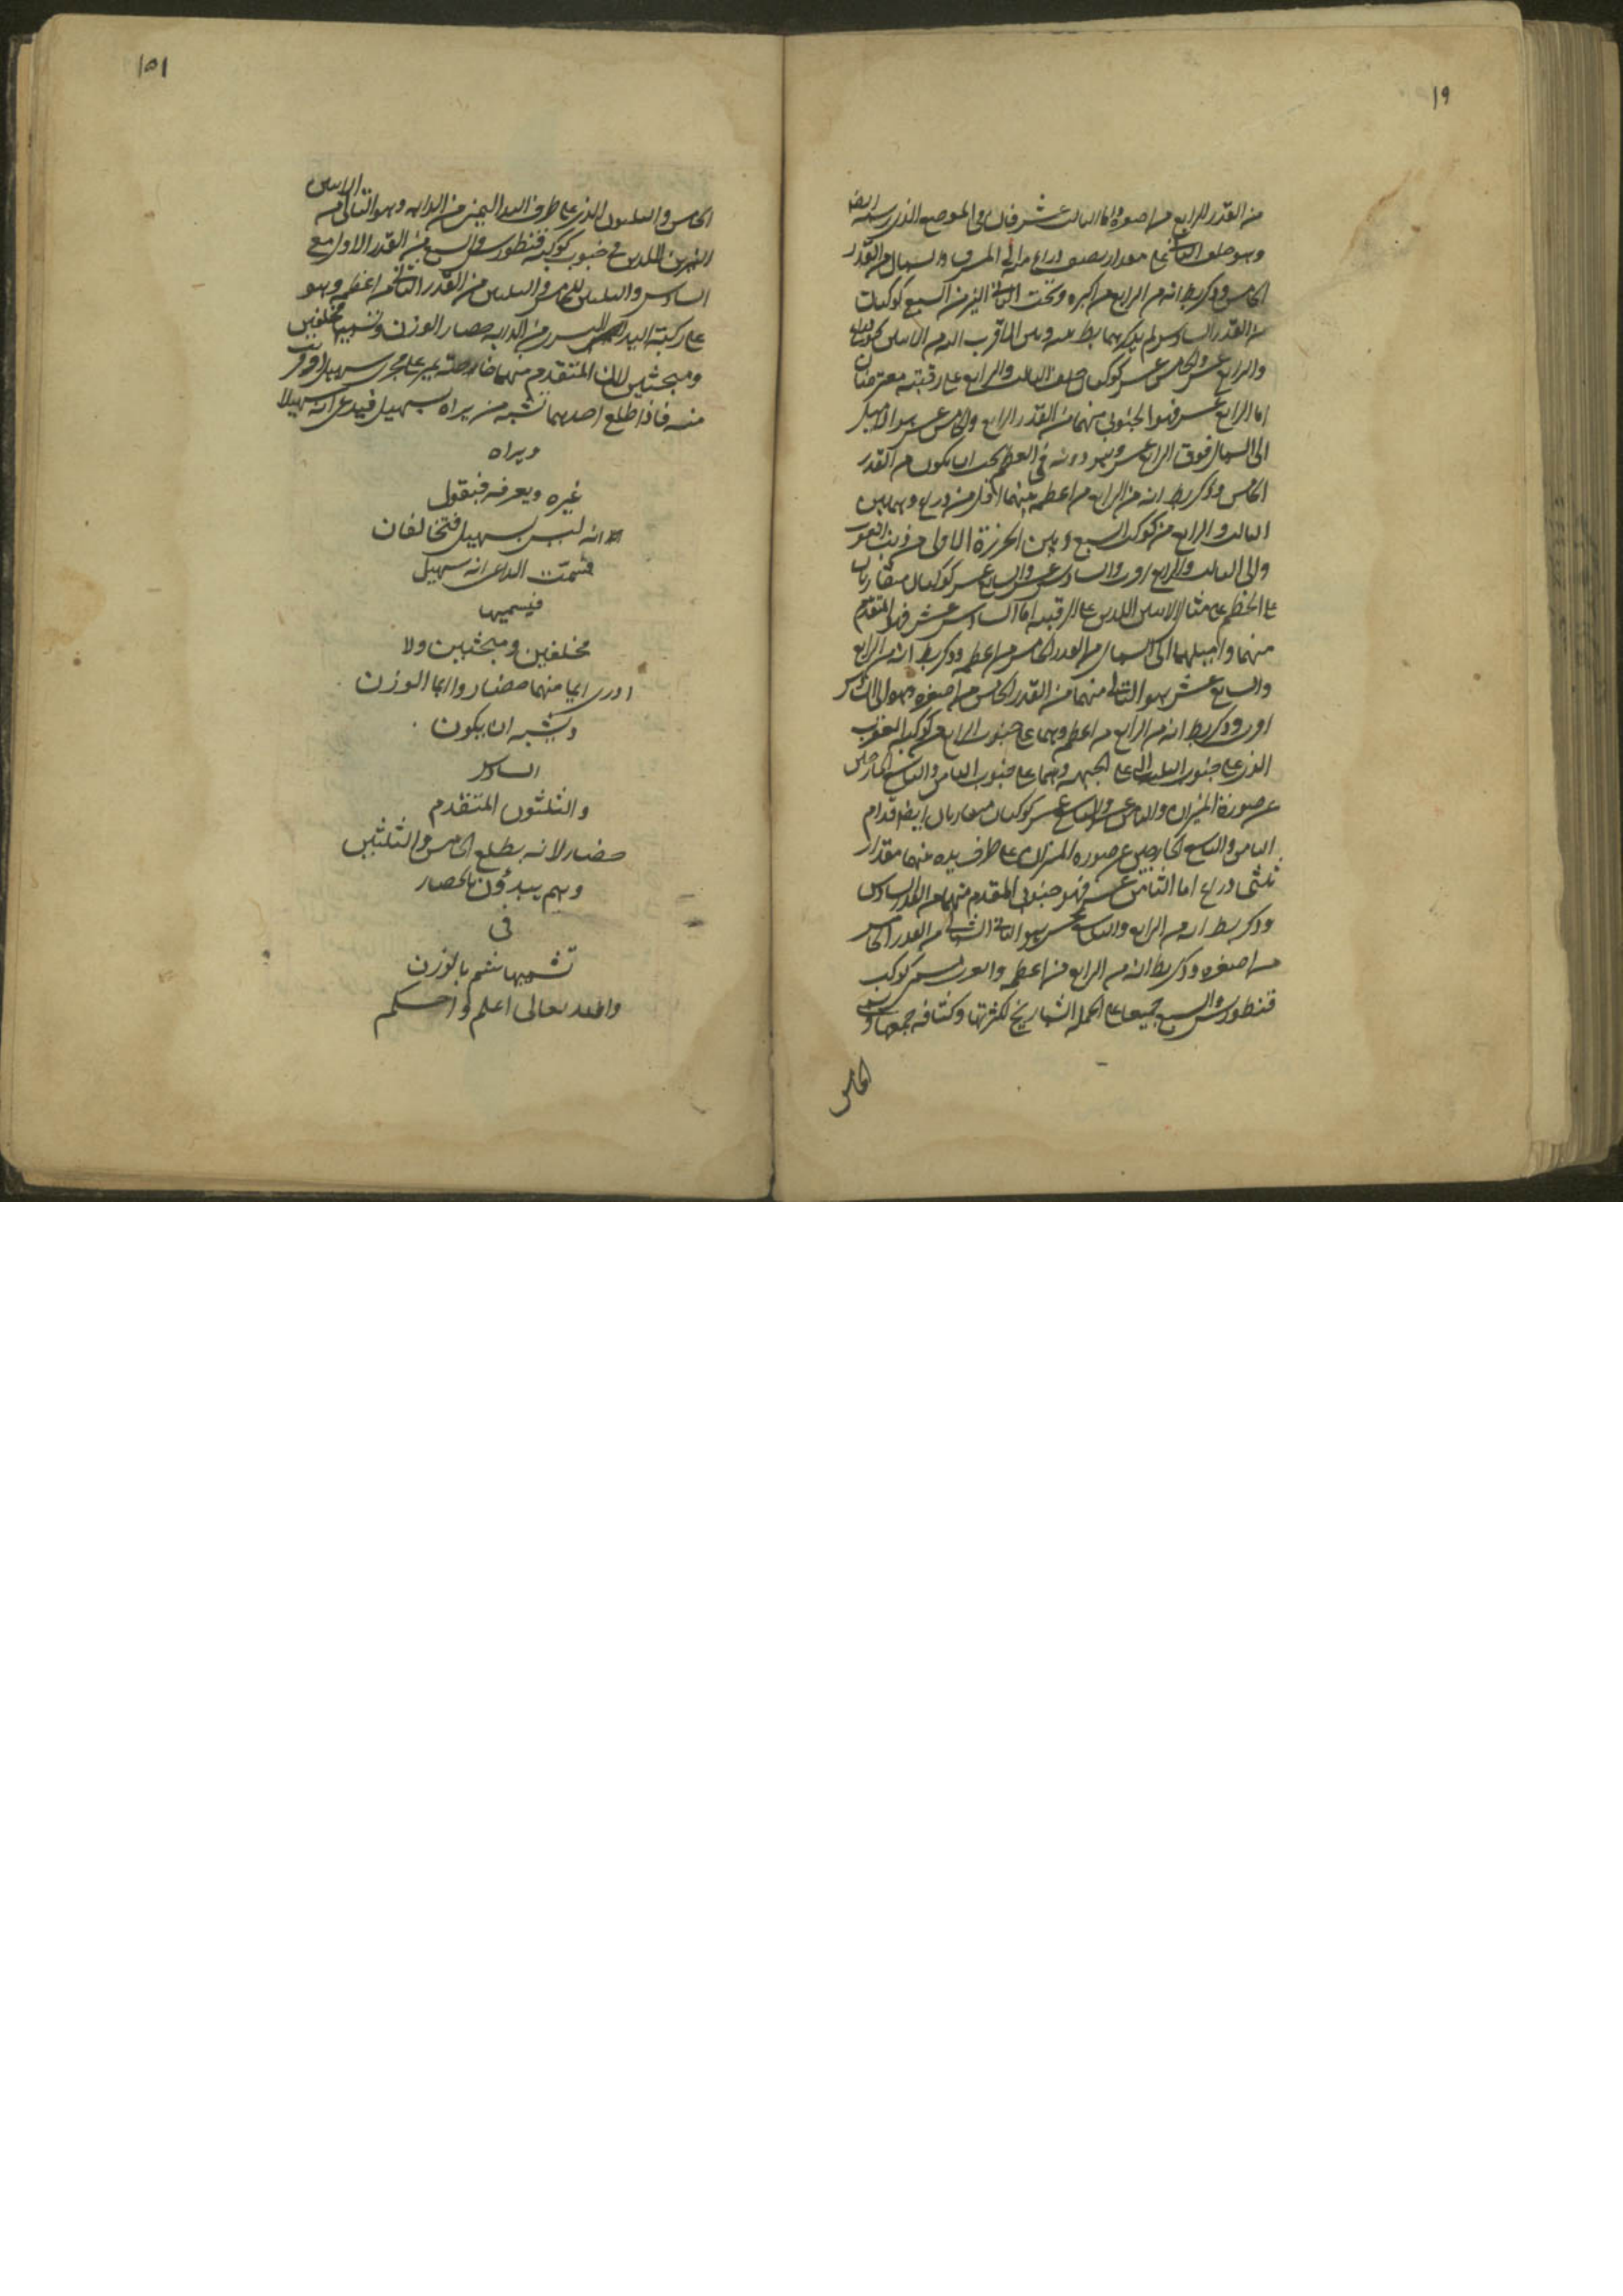 ١٩
من القدر الرابع من اصغره واما الثالث عشر فان في الموضع الذي رسمه ايضا
وهو خلف الثاني على مقدار نصف ذراع مائل الى المشرق والشمال من القدر
الخامس وذكر بط انه من الرابع من اكبره وتحت الثاني النير من السبع كوكبات
من القدر السادس لم يذكرهما بط
والرابع عشر والخامس عشر كوكبان خلف الثالث والرابع على رقبته معترضتان
اما الرابع عشر فهو الجنوبي منهما من القدر الرابع والخامس عشر هو الاميل
الى الشمال فوق الرابع عشر وهو دونه في العظم يجب ان يكون من القدر
الخامس وذكر بط انه من الرابع من اعظمه بينهما اقل من ذراع وهما بين
الثالث والرابع من كوكب السبع وبين الخرزة الاولى من ذنب العقرب
والى الثالث والرابع اقرب والسادس عشر والسابع عشر كوكبان متقاربان
على الخط على مثال الاثنين اللذين على الرقبة اما السادس عشر فهو المتقدم
منهما واميلهما الى الشمال من القدر الخامس من اعظمه وذكر بط انه من الرابع
والسابع عشر هو التالي منهما من القدر الخامس من اصغره وهو الى
اقرب وذكر بط انه من الرابع من اعظمه وهما على جنوب الرابع من كوكبة العقرب
الذي على جنوب الثلثة التي على الجبهة وهما على جنوب الثامن والتاسع الخارجين
عن صورة الميزان والثامن عشر والتاسع عشر كوكبان متقاربان ايضا قدام
الثامن والتاسع الخارجين عن صورة الميزان على طرف يده بينهما مقدار
ثلثي ذراع اما الثامن عشر فهو جنوبي المتقدم منهما من القدر السادس
وذكر بط انه من الرابع والتاسع عشر هو التالي الشمالي من القدر الخامس
من اصغره وذكر بط انه من الرابع من اعظمه والعرب تسمي كوكب
قنطورس والسبع جميعا على الجملة الشماريخ لكثرتها وكثافة جمعها وتسمى
الخامس
١٥١
الخامس والثلثون الذي على طرف اليد اليمنى من الدابة وهو التالي من الاثنين
النيرين اللذين في جنوب كوكبة قنطورس والسبع من القدر الاول مع
السادس والثلثين من القدر الثاني من اعظمه وهو
على ركبة اليد اليسرى من الدابة حضار والوزن وتسميهما محلفين
ومحنثين لان المتقدم منهما خاصته يمر على مجرى سهيل
منه فاذا طلع احدهما تشبه من يراه بسهيل فيدعي انه سهيلا
ويراه
غيره ويعرفه فيقول
انه ليس بسهيل فتخالفان
فتمت الداعي انه سهيل
فيسميها
محلفين ومحنثين ولا
ادري ايما منهما حضار وايما الوزن
ويشبه ان يكون
السادس
والثلثون المتقدم
حضار لانه يطلع الخامس والثلثين
وهم يبدؤن بالحضار
في
تسميها ثم بالوزن
والله تعالى اعلم واحكم